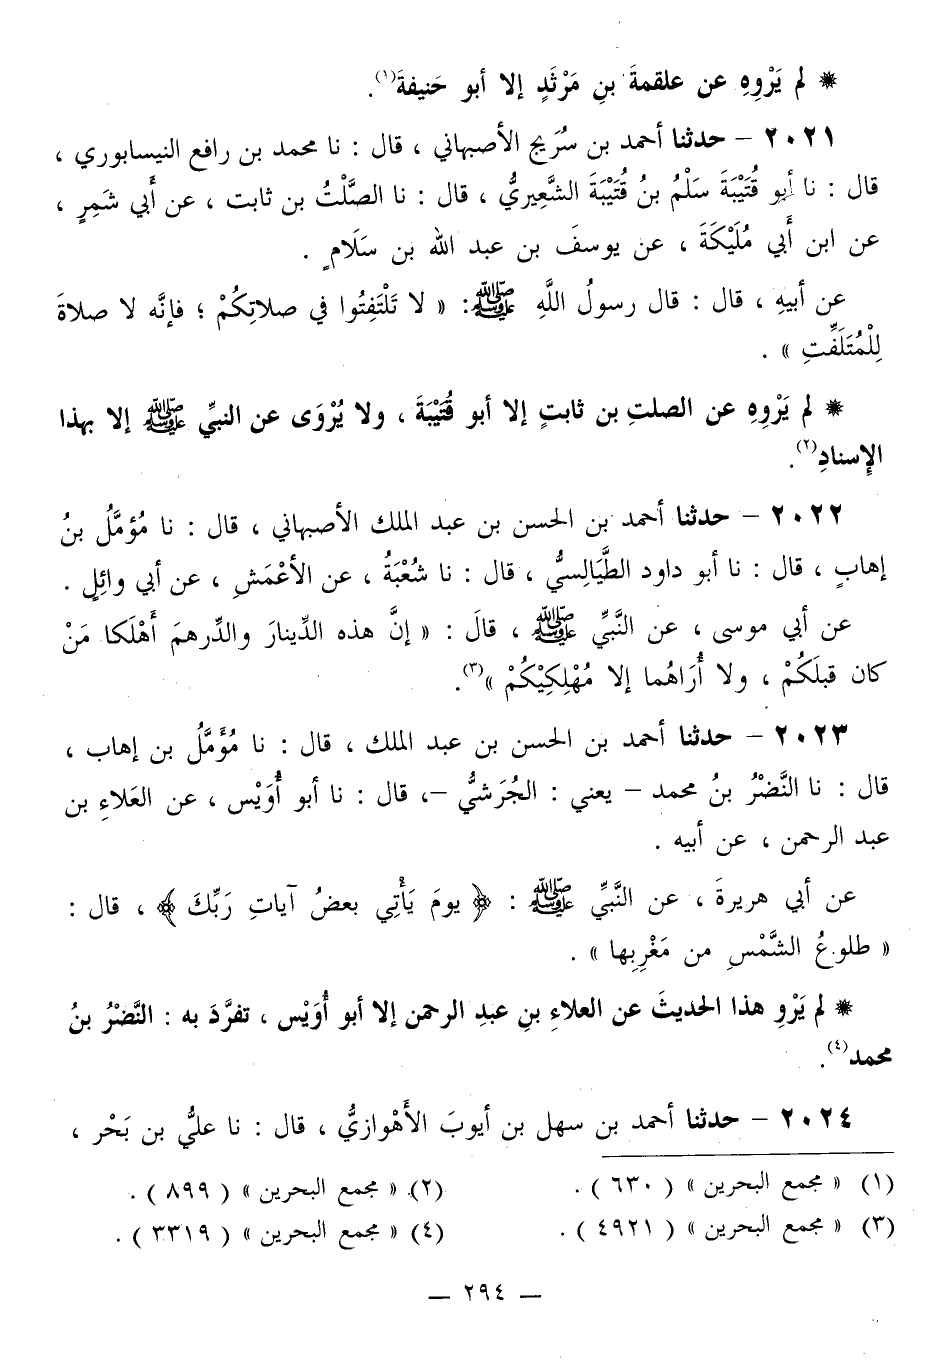 ✵ لم يَرْوِهِ عن علقمةَ بنِ مَرْثَدٍ إلا أبو حَنيفةَ(١).
٢٠٢١ – حدثنا أحمد بن سُرَيج الأصبهاني ، قال : نا محمد بن رافع النيسابوري ،
قال : نا أبو قُتَيْبَةَ سَلْمُ بنُ قُتَيْبَةَ الشَّعِيريُّ ، قال : نا الصَّلْتُ بن ثابت ، عن أَبي شَمِرٍ ،
عن ابن أَبي مُلَيْكَةَ ، عن يوسفَ بن عبد الله بن سَلَامٍ .
عن أبيهِ ، قال : قال رسولُ اللَّهِ ﷺ: « لا تَلْتَفِتُوا في صلاتِكُمْ ؛ فإنَّه لا صلاةَ
لِلْمُتَلَفِّتِ » .
✵ لم يَرْوِهِ عن الصلتِ بن ثابتٍ إلا أبو قُتَيْبَةَ ، ولا يُرْوَى عن النبيِّ ﷺ إلا بهذا
الإسنادِ(٢).
٢٠٢٢ – حدثنا أحمد بن الحسن بن عبد الملك الأصبهاني ، قال : نا مُؤمَّلُ بنُ
إهابٍ ، قال : نا أبو داود الطَّيَالِسيُّ ، قال : نا شُعْبَةُ ، عن الأعْمَشِ ، عن أبي وائِلٍ .
عن أبي موسى ، عن النَّبيِّ ﷺ ، قالَ : « إنَّ هذه الدِّينارَ والدِّرهمَ أَهْلَكا مَنْ
كان قبلَكُمْ ، ولا أُرَاهُما إلا مُهْلِكِيْكُمْ »(٣).
٢٠٢٣ – حدثنا أحمد بن الحسن بن عبد الملك ، قال : نا مُؤَمَّلُ بن إهاب ،
قال : نا النَّضْرُ بنُ محمد – يعني : الجُرَشيُّ –، قال : نا أبو أُوَيْس ، عن العَلاءِ بن
عبد الرحمن ، عن أبيه .
عن أبي هريرةَ ، عن النَّبيِّ ﷺ : ﴿ يومَ يَأْتِي بعضُ آياتِ رَبِّكَ ﴾ ، قال :
« طلوعُ الشَّمْسِ من مَغْرِبِها » .
✵ لم يَرْوِ هذا الحديثَ عن العلاءِ بنِ عبدِ الرحمن إلا أبو أُوَيْس ، تفرَّدَ به : النَّضْرُ بنُ
محمد(٤).
٢٠٢٤ – حدثنا أحمد بن سهل بن أيوبَ الأَهْوازيُّ ، قال : نا عليُّ بن بَحْر ،
(١) « مجمع البحرين » ( ٦٣٠ ) . (٢) « مجمع البحرين » ( ٨٩٩ ) .
(٣) « مجمع البحرين » ( ٤٩٢١ ) . (٤) « مجمع البحرين » ( ٣٣١٩ ) .
— ٢٩٤ —